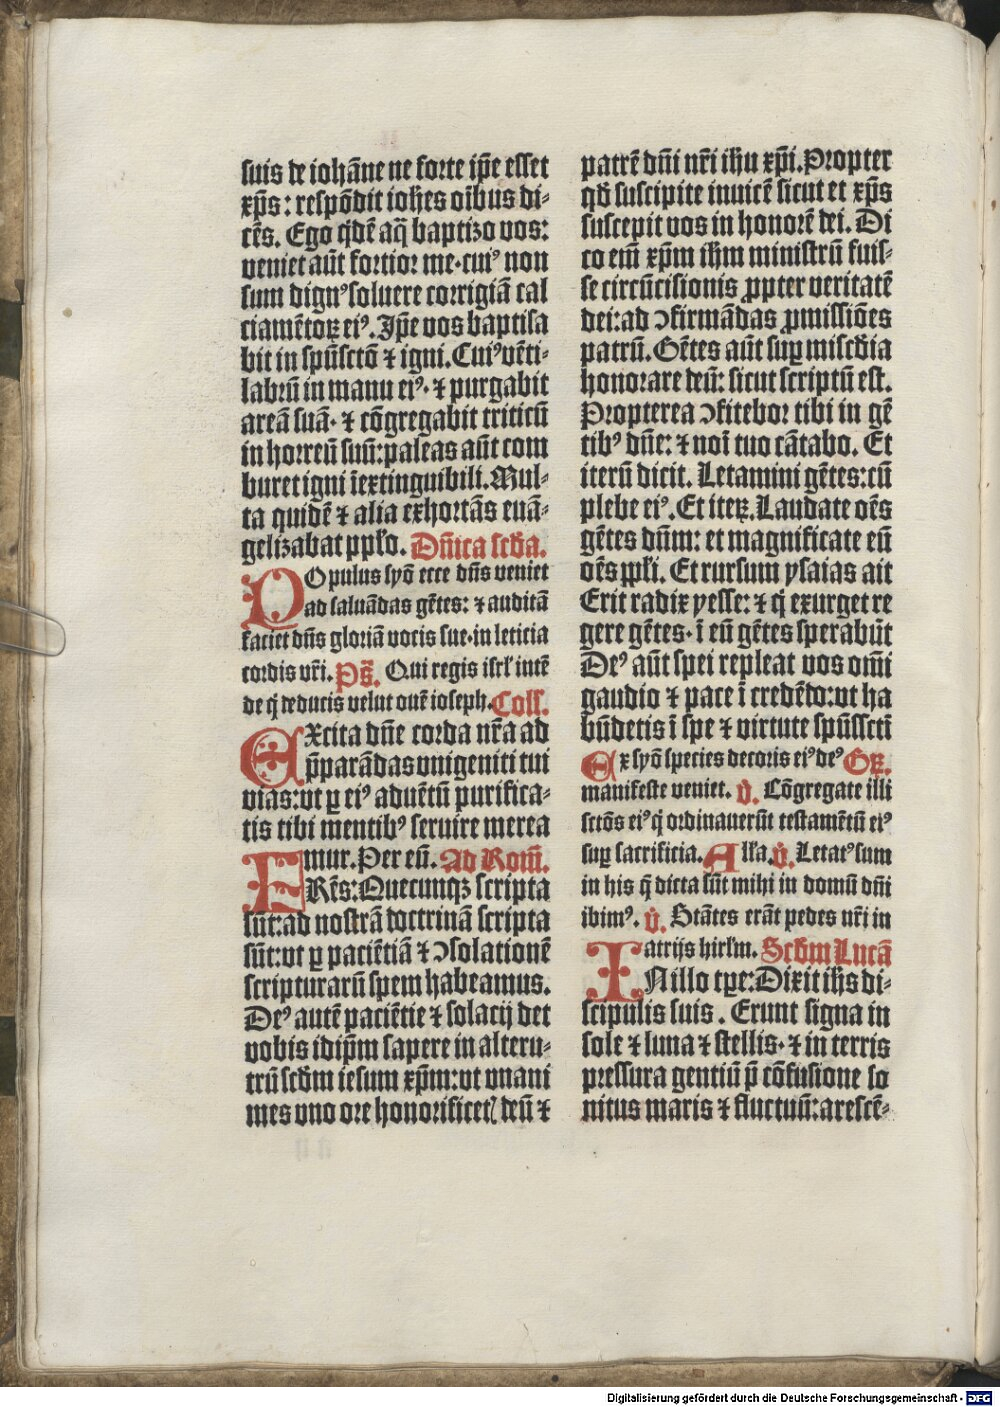 suis de iohāne ne forte ip̄e esset
xp̄s: respōdit ioh̄es oībus di-
cēs. Ego q̇dē aq̄ baptizo vos:
veniet aūt fortior me·cuiꝰ non
sum dignꝰ soluere corrigiā cal
ciamētoꝝ eiꝰ. Ip̄e vos baptisa
bit in spūsctō ⁊ igni. Cuiꝰ vēti-
labrū in manu eiꝰ· ⁊ purgabit
areā suā· ⁊ cōgregabit triticū
in horreū suū: paleas aūt com
buret igni īextinguibili. Mul-
ta quidē ⁊ alia exhortās euā-
gelizabat pplo. Dn̄ica scd̄a.
POpulus syō ecce dn̄s veniet
ad saluādas gētes: ⁊ auditā
faciet dn̄s gloriā vocis sue·in leticia
cordis vr̄i. Ps̄. Qui regis isrl' intē
de q̇ deducis velut ouē ioseph. Coll'.
EXcita dn̄e corda nr̄a ad
p̄parādas vnigeniti tui
vias:vt ꝑ eiꝰ aduētū purifica-
tis tibi mentibꝰ seruire merea
mur. Per eū. Ad Rom̄.
FRēs: Quecunqꝫ scripta
sūt:ad nostrā doctrinā scripta
sūt:vt ꝑ paciētiā ⁊ ↄsolationē
scripturarū spem habeamus.
Deꝰ autē paciētie ⁊ solacij det
vobis idip̄m sapere in alteru-
trū scd̄m iesum xp̄m:vt vnani
mes vno ore honorificetꝭ deū ⁊
patrē dn̄i nr̄i ih̄u xp̄i. Propter
qd̄ suscipite inuicē sicut et xp̄s
suscepit vos in honorē dei. Di
co em̄ xp̄m ih̄m ministrū fuis-
se circūcisionis ꝓpter veritatē
dei:ad ↄfirmādas ꝓmissiōes
patrū. Gētes aūt suꝑ miscd̄ia
honorare deū: sicut scriptū est.
Propterea ↄfitebor tibi in gē
tibꝰ dn̄e: ⁊ noī tuo cātabo. Et
iterū dicit. Letamini gētes:cū
plebe eiꝰ. Et iteꝝ. Laudate oēs
gētes dūm: et magnificate eū
oēs ppl'i. Et rursum ysaias ait
Erit radix yesse: ⁊ q̇ exurget re
gere gētes· ī eū gētes sperabūt
Deꝰ aūt spei repleat vos om̄i
gaudio ⁊ pace ī credēdo:vt ha
būdetis ī spe ⁊ virtute spūsscti
Ex syō species decoris eiꝰ deꝰ Gꝝ.
manifeste veniet. V̇. Cōgregate illi
sctōs eiꝰ q̇ ordinauerūt testamētū eiꝰ
suꝑ sacrificia. Alla. V̇. Letatꝰ sum
in his q̄ dicta sūt mihi in domū dn̄i
ibimꝰ. V̇. Stātes erāt pedes nr̄i in
atrijs hirlm. Scd̄m Lucā
INillo tꝑe: Dixit ih̄s di-
scipulis suis. Erunt signa in
sole ⁊ luna ⁊ stellis· ⁊ in terris
pressura gentiū p̄ cōfusione so
nitus maris ⁊ fluctuū:arescē-
Digitalisierung gefördert durch die Deutsche Forschungsgemeinschaft - DFG